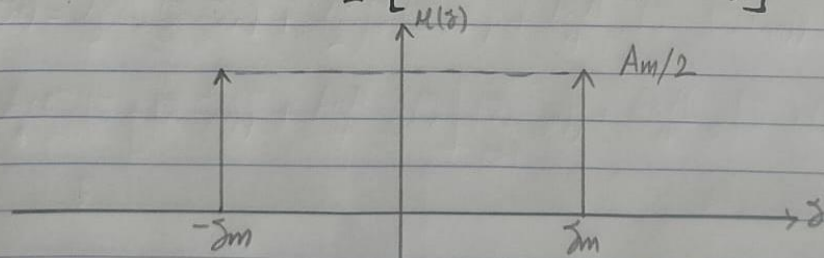 [ ]
M(f)
Am/2
-fm fm f